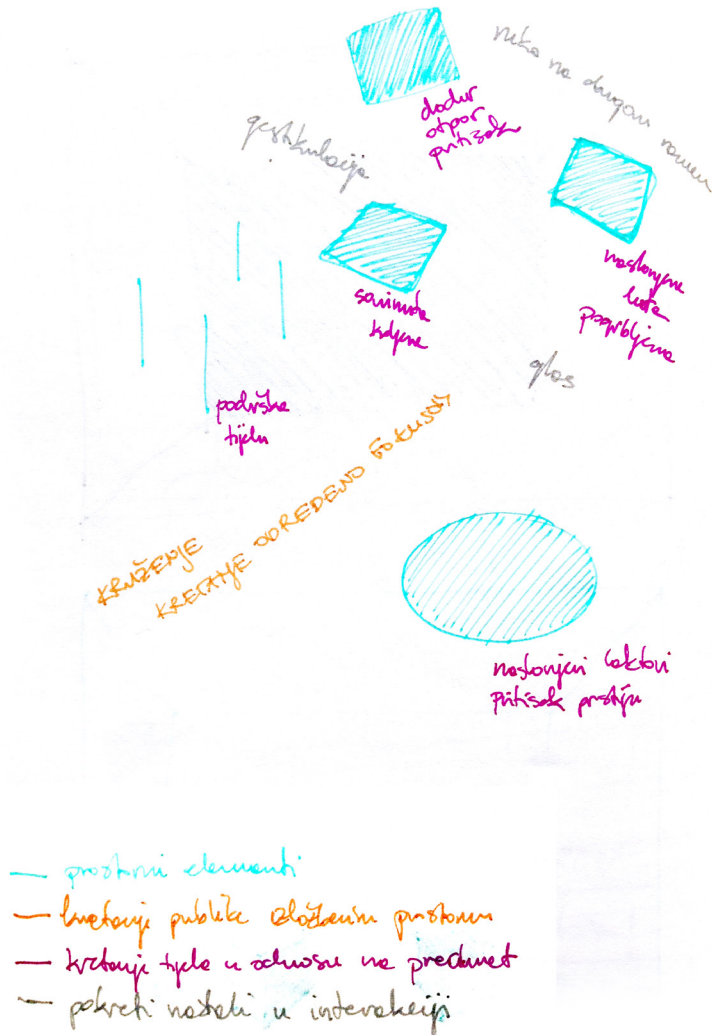 ruka na drugom ramenu
dodir
otpor
pritisak
gestikulacija
naslonjena
leđa
pogrbljena
savinuta
koljena
glas
podrška
tijelu
KRUŽENJE
KRETANJE ODREĐENO FOKUSOM
naslonjeni laktovi
pritisak prstiju
— prostorni elementi
— kretanje publike izložbenim prostorom
— kretanje tijela u odnosu na predmet
— pokreti nastali u interakciji